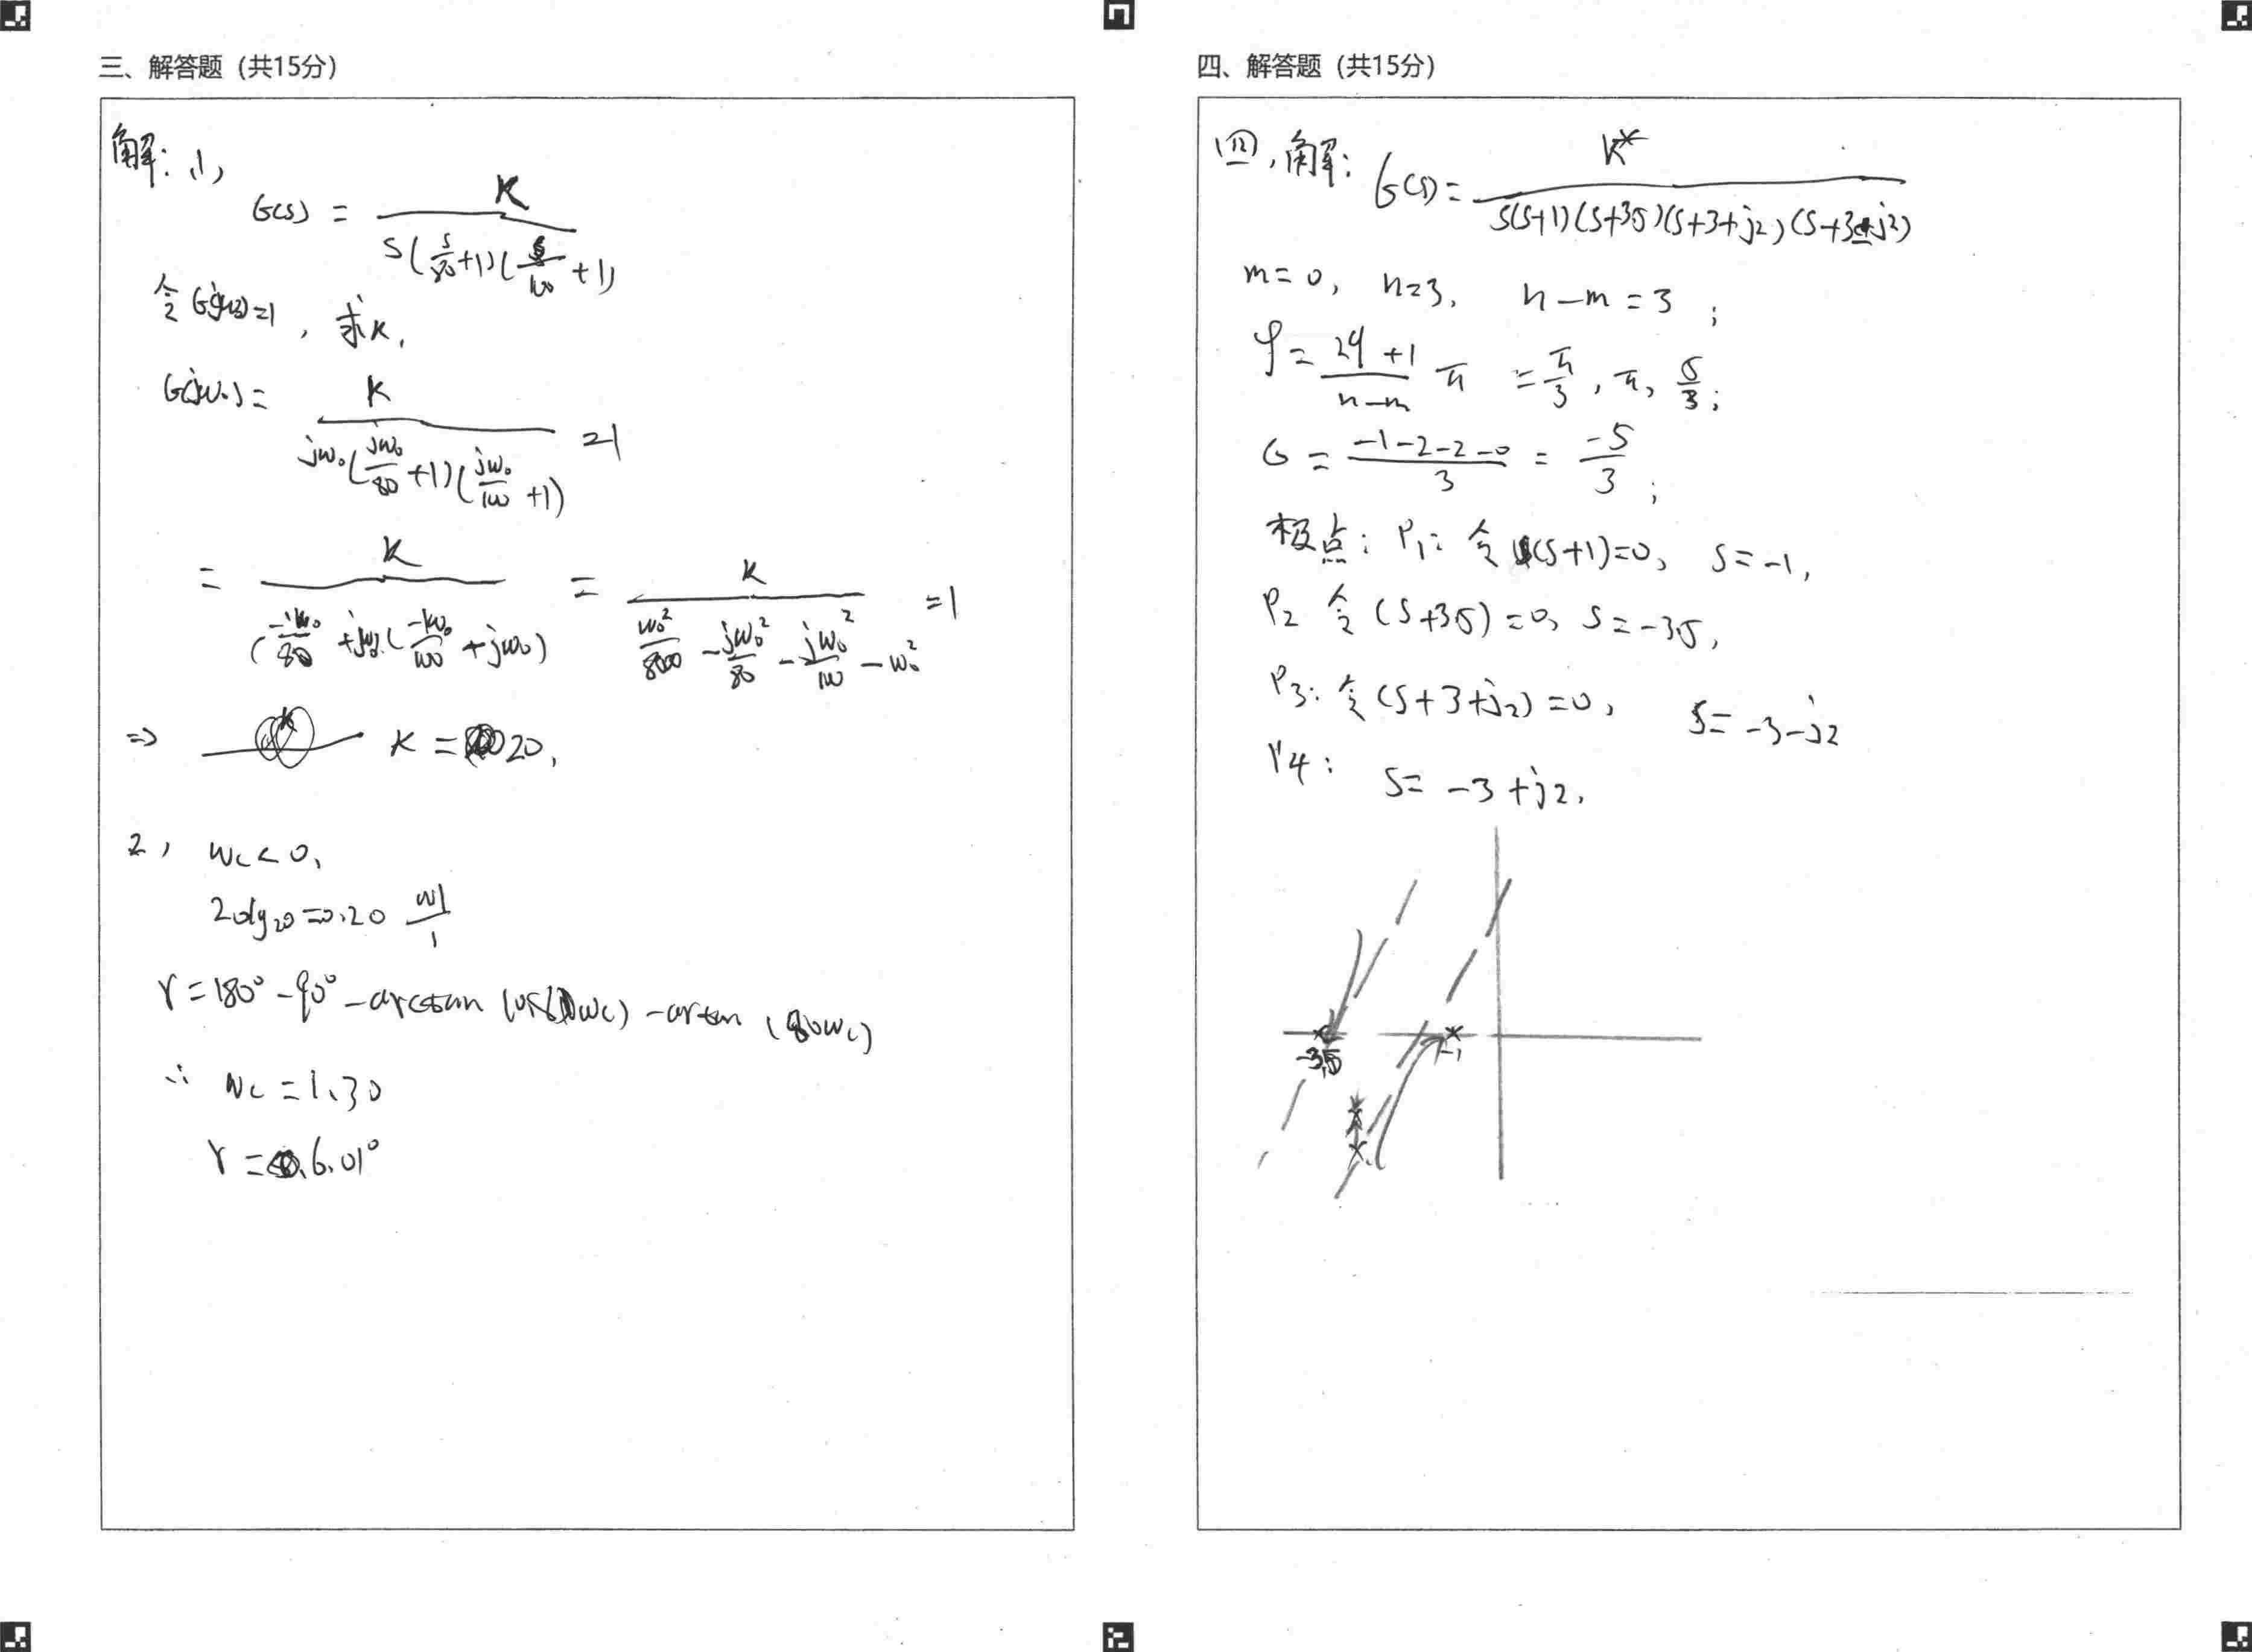 三、解答题（共15分）
解: 1,
G(s) = K / s(s/80+1)(s/100+1)
令G(jω0)=1, 求K.
G(jω0) = K / jω0(jω0/80+1)(jω0/100+1) =1
= K / (-ω0/80+jω0)(-ω0/100+jω0) = K / ω0²/8000 - jω0²/80 - jω0²/100 - ω0² =1
=> K = 20,
2, ωc < 0,
20lg20 = 0.20 ω1/1
γ=180°-90°-arctan ( ωc) -arctan (80ωc)
∴ ωc = 1.30
γ = 6.01°
四、解答题（共15分）
四, 解: G(s)= K* / s(s+1)(s+3.5)(s+3+j2)(s+3-j2)
m=0, n=3, n-m=3;
φ= 2q+1 / n-m π = π/3, π, 5/3;
σ = -1-2-2-0 / 3 = -5/3;
极点: P1: 令(s+1)=0, s=-1,
P2 令(s+3.5)=0, s=-3.5,
P3: 令(s+3+j2)=0, s=-3-j2
P4: s= -3+j2,
-3.5 -1